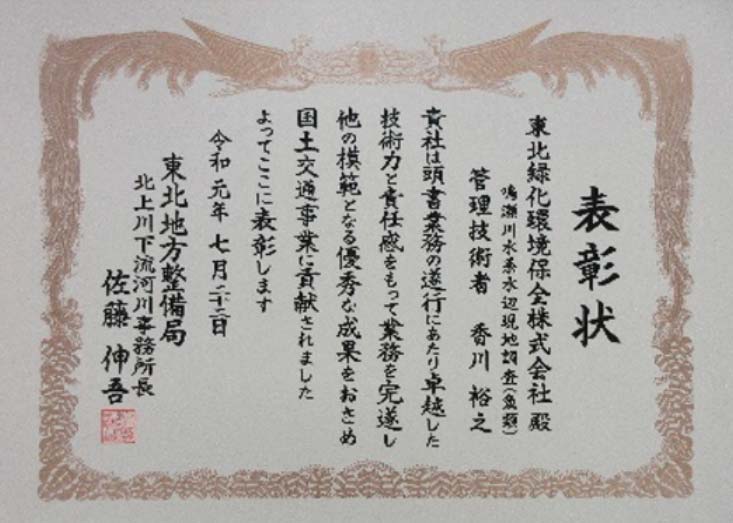 表彰状
東北緑化環境保全株式会社 殿
鳴瀬川水系水辺現地調査(魚類)
管理技術者 香川 裕之
貴社は頭書業務の遂行にあたり卓越した
技術力と責任感をもって業務を完遂し
他の模範となる優秀な成果をおさめ
国土交通事業に貢献されました
よってここに表彰します
令和元年 七月二十二日
東北地方整備局
北上川下流河川事務所長
佐藤 伸吾